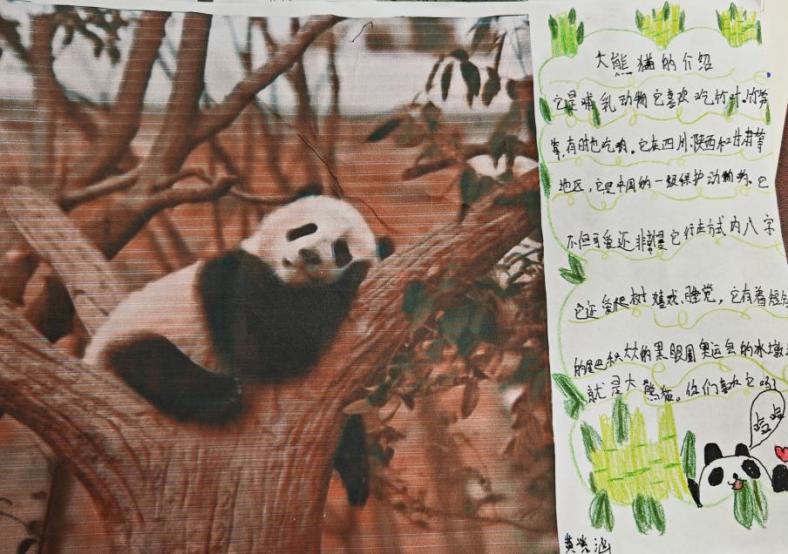 大熊猫的介绍
它是哺乳动物它喜欢吃竹叶、竹笋
等,有时也吃肉。它在四川、陕西和甘肃等
地区,它是中国的一级保护动物。它
不但可爱还非常慢它行走方式内八字
它还会爬树嬉戏、睡觉,它有着短短
的尾巴和大大的黑眼圈奥运会的冰墩墩
就是大熊猫。你们喜欢它吗?